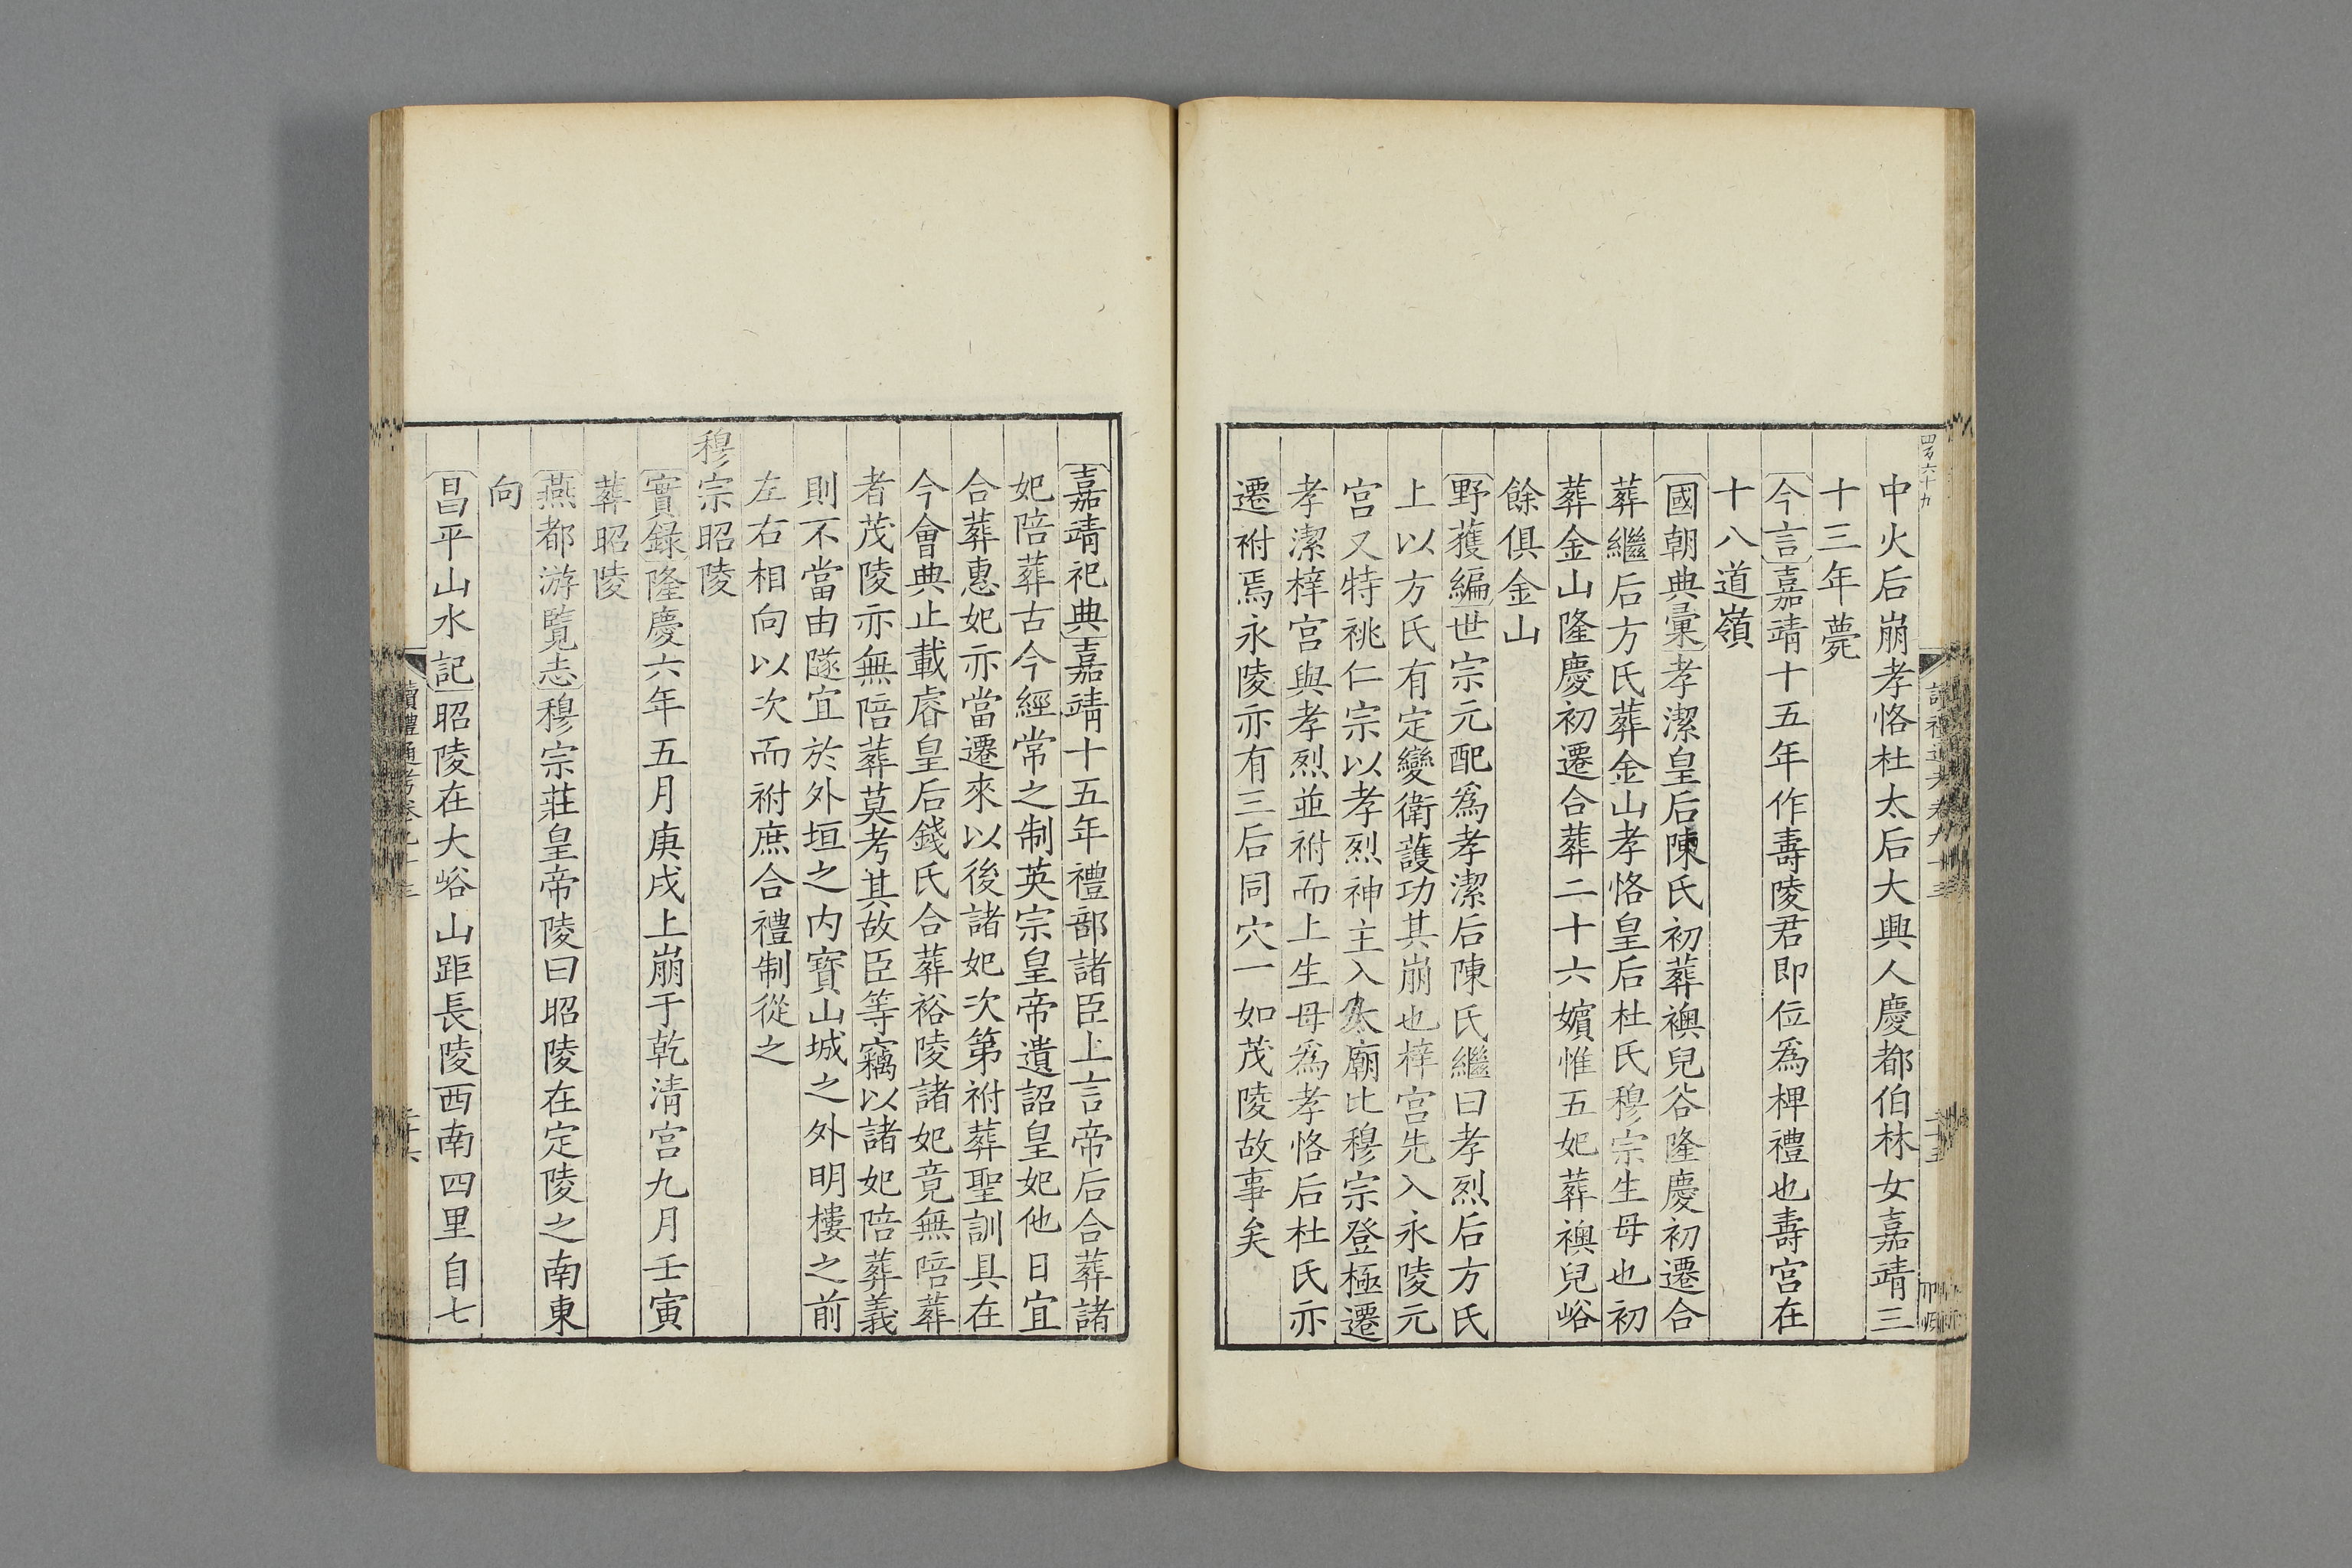 中火后崩孝恪杜太后大興人慶都伯林女嘉靖三
十三年薨
今言嘉靖十五年作壽陵君即位爲椑禮也壽宫在
十八道嶺
國朝典彙孝潔皇后陳氏初葬襖兒谷隆慶初遷合
葬繼后方氏葬金山孝恪皇后杜氏穆宗生母也初
葬金山隆慶初遷合葬二十六嬪惟五妃葬襖兒峪
餘俱金山
野獲編世宗元配爲孝潔后陳氏繼曰孝烈后方氏
上以方氏有定變衛護功其崩也梓宫先入永陵元
宫又特祧仁宗以孝烈神主入太廟比穆宗登極遷
孝潔梓宫與孝烈並祔而上生母爲孝恪后杜氏亦
遷祔焉永陵亦有三后同穴一如茂陵故事矣
嘉靖祀典嘉靖十五年禮部諸臣上言帝后合葬諸
妃陪葬古今經常之制英宗皇帝遺詔皇妃他日宜
合葬惠妃亦當遷來以後諸妃次第祔葬聖訓具在
今會典止載睿皇后錢氏合葬裕陵諸妃竟無陪葬
者茂陵亦無陪葬莫考其故臣等竊以諸妃陪葬義
則不當由隧宜於外垣之内寶山城之外明樓之前
左右相向以次而祔庶合禮制從之
穆宗昭陵
實錄隆慶六年五月庚戌上崩于乾清宫九月壬寅
葬昭陵
燕都游覽志穆宗莊皇帝陵曰昭陵在定陵之南東
向
昌平山水記昭陵在大峪山距長陵西南四里自七
讀禮通考卷九十三